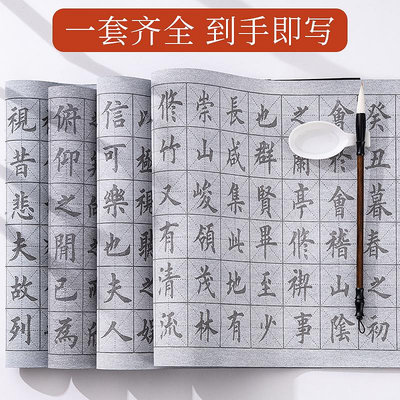 一套齐全 到手即写
癸丑暮春之初
會會稽山陰
之蘭亭脩禊事
也群賢畢至少
長咸集此地有
崇山峻領茂林
脩竹又有清流
以極視聽之娛
信可樂也夫人
俯仰之閒已為
視昔悲夫故列